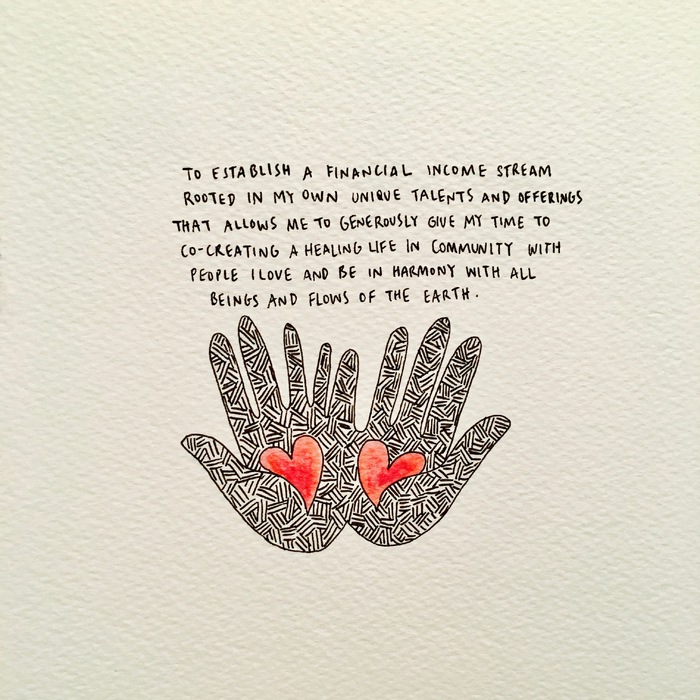 TO ESTABLISH A FINANCIAL INCOME STREAM
ROOTED IN MY OWN UNIQUE TALENTS AND OFFERINGS
THAT ALLOWS ME TO GENEROUSLY GIVE MY TIME TO
CO-CREATING A HEALING LIFE IN COMMUNITY WITH
PEOPLE I LOVE AND BE IN HARMONY WITH ALL
BEINGS AND FLOWS OF THE EARTH.